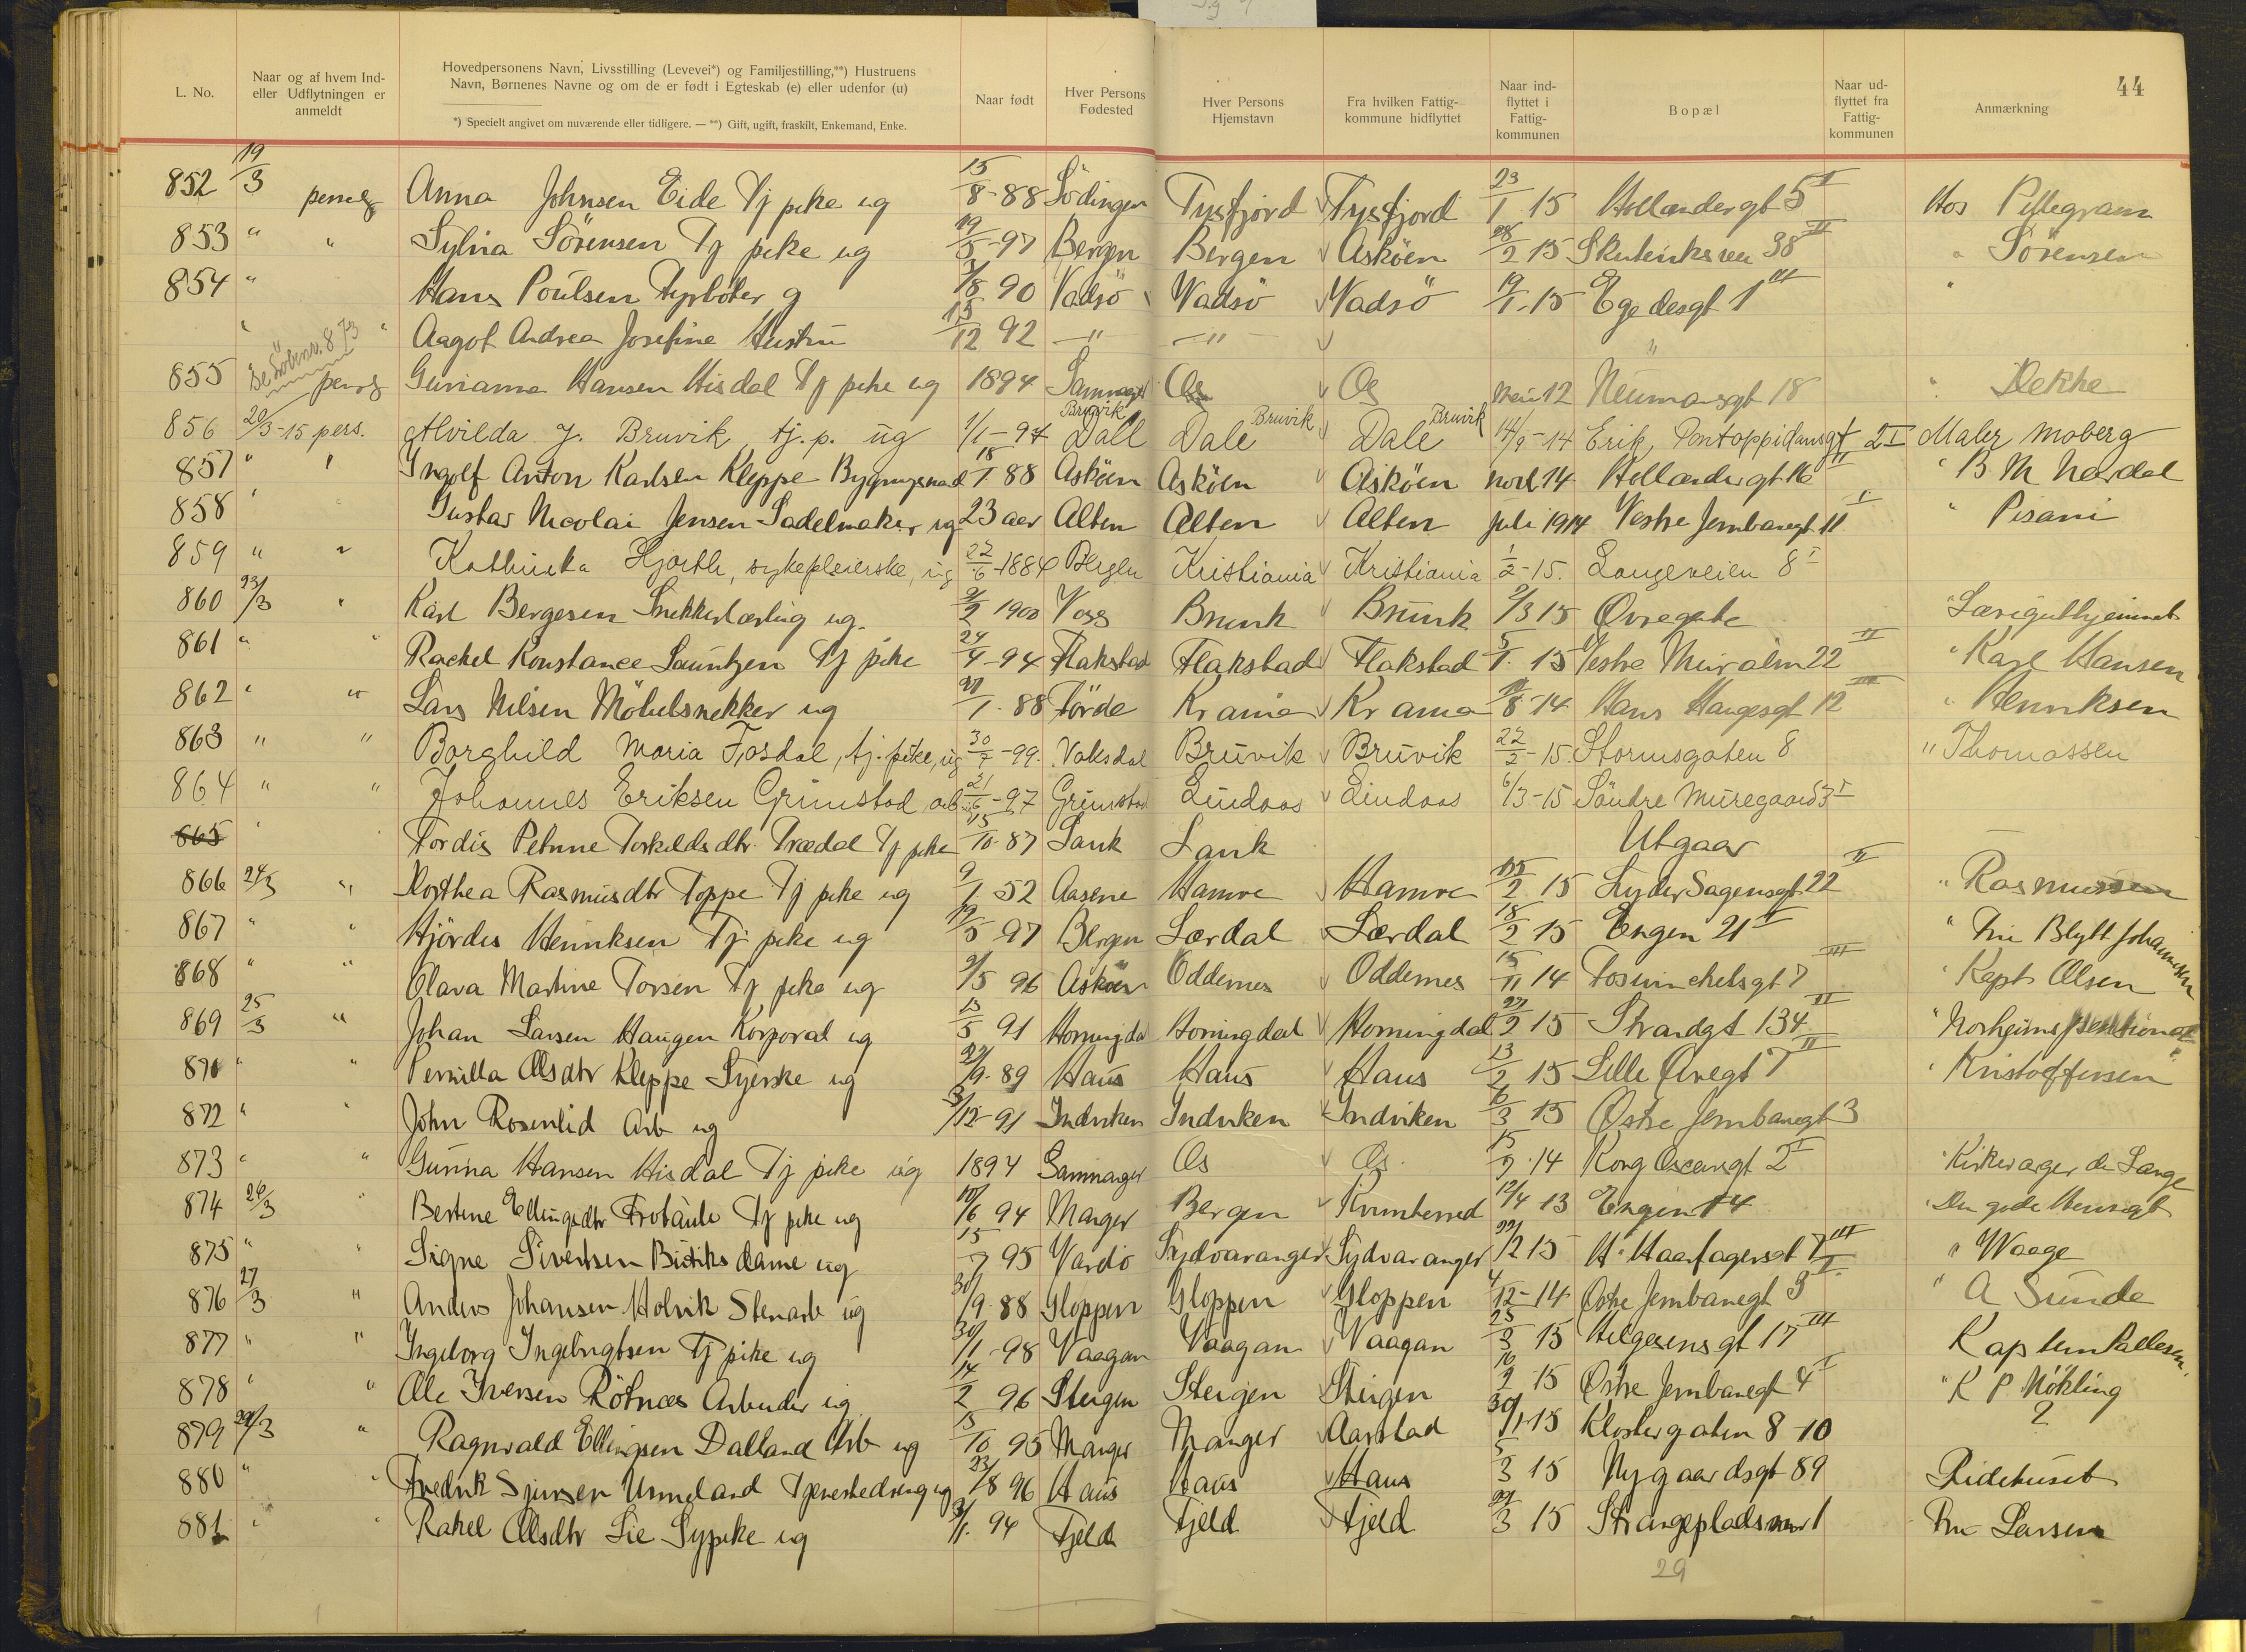 44
L. No.
Naar og af hvem Ind- eller Udflytningen er anmeldt
Hovedpersonens Navn, Livsstilling (Levevei*) og Familjestilling,**) Hustruens Navn, Børnenes Navne og om de er født i Egteskab (e) eller udenfor (u)
*) Specielt angivet om nuværende eller tidligere. — **) Gift, ugift, fraskilt, Enkemand, Enke.
Naar født
Hver Persons Fødested
Hver Persons Hjemstavn
Fra hvilken Fattig- kommune hidflyttet
Naar ind- flyttet i Fattig- kommunen
Bopæl
Naar ud- flyttet fra Fattig- kommunen
Anmærkning
852 19/3 Anna Johnsen Eide Tj pike ug 15/8-88 Södingen Tysfjord Tysfjord 23/1 15 Hollendergt 5 II Hos Pillegram
853 " " Sylvia Sörensen Tj pike ug 19/5-97 Bergen Bergen Asköen 28/2 15 38 II " Sörensen
854 " Hans Poulsen Fyrböter g 3/8 90 Vadsö Vadsö Vadsö 19/1-15 Egedesgt 1 III "
" " Aagot Andrea Josefine Hustru 15/12 92 —"— —"— "
855 Se 873 Hansen Hisdal Tj pike ug 1894 Os Os 12 Neumansgt 18 " Dekke
856 20/3-15 pers. Alvilda J. Bruvik, tj. p. ug 1/1-94 Dall Bruvik Dale Bruvik Dale Bruvik 14/9-14 Erik Pontoppidansgt 2 I Maler Moberg
857 " " Ingolf Anton Karlsen Kleppe 18/1 88 Asköen Asköen Asköen 14 Hollendergt 16 II " B M
858 " " Gustav Nicolai Jensen Sadelmaker ug 23 aar Alten Alten Alten juli 1914 Vestre Jernbanegt 11 I " Pisani
859 " " Kathinka Hjorth, sykepleierske, ug 22/6-1884 Bergen Kristiania Kristiania 1/2-15. Langeveien 8 I
860 23/3 " Karl Bergesen Snekkerlærling ug. 9/2 1900 Voss 9/3 15 Øvregate
861 " " Rachel Konstance Tj pike 24/4-94 Flakstad Flakstad Flakstad 5/1 15 Vestre 22 II " Karl Hansen
862 " " Lars Nilsen Möbelsnekker ug 27/1-88 Förde Krania Krania 8-14 Hans Haugesgt 12 III " Henriksen
863 " " Borghild Maria Fosdal, tj. pike, ug 30/7-99. Vaksdal Bruvik Bruvik 22/2-15. Stormsgaten 8 " Thomassen
864 " " Johannes Eriksen Grimstad arb. ug 21/6-97 Grimstad Lindaas Lindaas 6/3-15 Söndre Muregaard 3 I
865 " " Tordis Petrine Torkildsdtr. Trædal Tj pike 15/10-87 Lank Lank Utgaar —
866 24/3 " Dorthea Rasmusdtr Toppe Tj pike ug 9/1 52 Aasene Hamre Hamre /2 15 Lyder Sagensgt 22 II " Rasmussen
867 " " Hjördis Henriksen Tj pike ug 19/5 97 Bergen Lærdal Lærdal 18/2 15 Engen 21 I " Fru Blytt Johannesen
868 " " Olava Martine Torsen Tj pike ug 9/5 96 Asköen Oddernes Oddernes 15/11 14 Foswinckelsgt 7 III " Kapt Olsen
869 25/3 " Johan Larsen Haugen Korporal ug 13/5 91 Horningdal Horningdal Horningdal 22/2 15 Strandgt 134 III " Norheims pensionat
871 " " Pernilla Olsdtr Kleppe Syerske ug 22/9-89 Haus Haus Haus 13/2 15 Lille Øvregt 7 II " Kristoffersen
872 " " John Rosenlid Arb ug 3/12-91 Indviken Indviken Indviken 6/3 15 Østre Jernbanegt 3
873 " " Gunna Hansen Hisdal Tj pike ug 1894 Samnanger Os Os 15/9-14 Kong Oscarsgt 2 I " Kirkeverger de Lange
874 26/3 " Bertine Ellingsdtr Tj pike ug 10/6 94 Manger Bergen Kvinnherred 12/4 13 Engen 14 " Den gode Hensigt
875 " " Signe Sivertsen Butiksdame ug 15/7 95 Vardö Sydvaranger Sydvaranger 22/2 15 H. Haarfagersgt 7 III " Waage
876 27/3 " Anders Johansen Holvik Stenarb ug 30/9-88 Gloppen Gloppen Gloppen 4/12-14 Østre Jernbanegt 3 I " A Sunde
877 " " Ingeborg Ingebrigtsen Tj pike ug 30/1-98 Vaagan Vaagan Vaagan 25/3 15 Helgesensgt 17 III Kaptein Pallesen
878 " " Ole Iversen Rötnæs Arbeider ug 14/2 96 Steigen Steigen Steigen 16/2 15 Østre Jernbanegt 4 I " K P Nökling
879 29/3 " Ragnvald Ellingsen Dalland Arb ug 15/10 95 Manger Manger Aarstad 30/1-15 Klostergaten 8-10 ?
880 " " Fredrik Sjursen Urmeland ug 23/8 96 Haus Haus Haus 5/3 15 Nygaardsgt 89 Ridehuset
881 " " Rakel Olsdtr Lie Sypike ug 3/1. 94 Fjeld Fjeld Fjeld 22/3 15 Strangepladsen 1 Fru Larsen
29